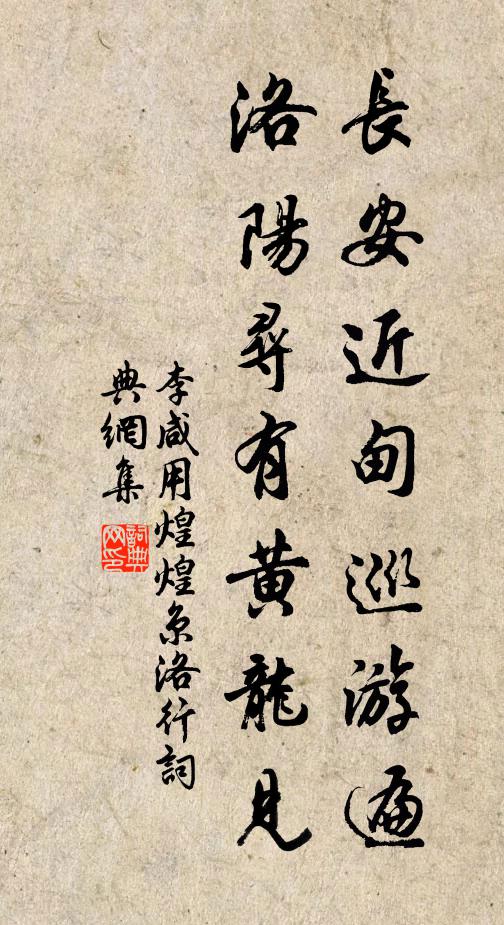 長安近甸巡游遍
洛陽尋有黃龍見
李咸用煌煌京洛行詞
典網集
詞典網印